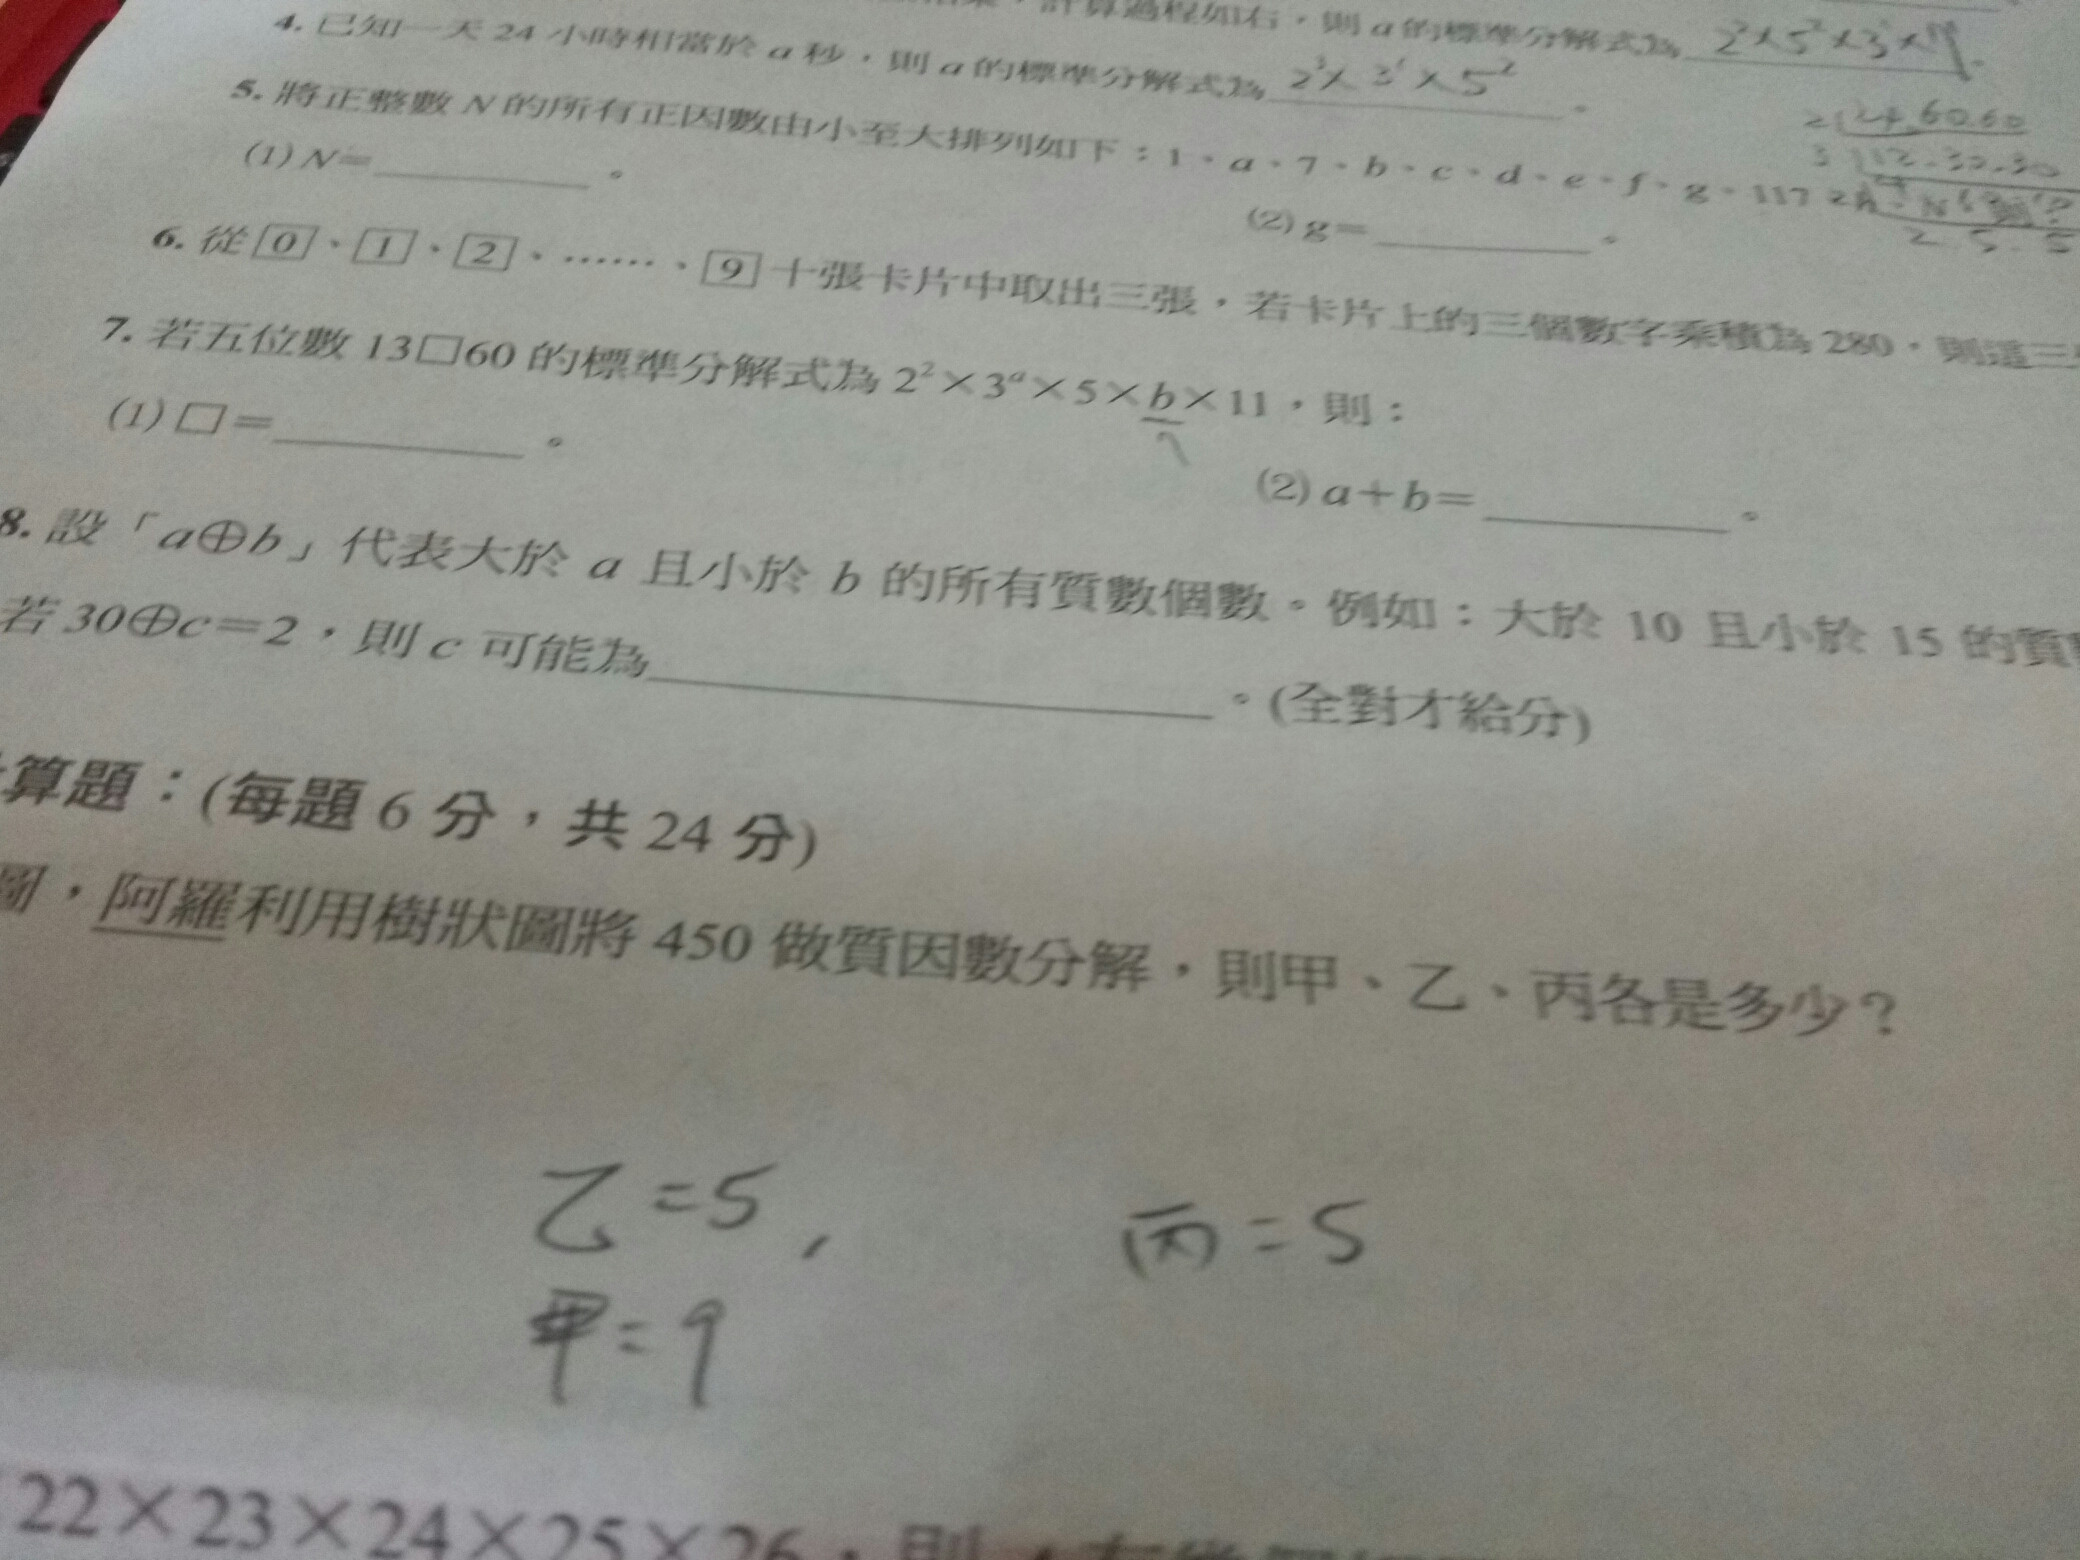 計算過程如右,則 a 的標準分解式為 2²×5²×3×7。
4. 已知一天 24 小時相當於 a 秒,則 a 的標準分解式為 2³×3¹×5²。
2 24.60.60
3 12.30.30
5. 將正整數 N 的所有正因數由小至大排列如下:1、a、7、b、c、d、e、f、g、117
2.5.5
(1) N= 。 (2) g= 。
6. 從 0、1、2、……、9 十張卡片中取出三張,若卡片上的三個數字乘積為 280,則這三
7. 若五位數 13□60 的標準分解式為 2²×3ᵃ×5×b×11,則:
7
(1) □= 。 (2) a+b= 。
8. 設「a⊕b」代表大於 a 且小於 b 的所有質數個數。例如:大於 10 且小於 15 的質
若 30⊕c=2,則 c 可能為 。(全對才給分)
算題:(每題 6 分,共 24 分)
圖,阿羅利用樹狀圖將 450 做質因數分解,則甲、乙、丙各是多少?
乙=5, 丙=5
甲=9
22×23×24×25×26,則